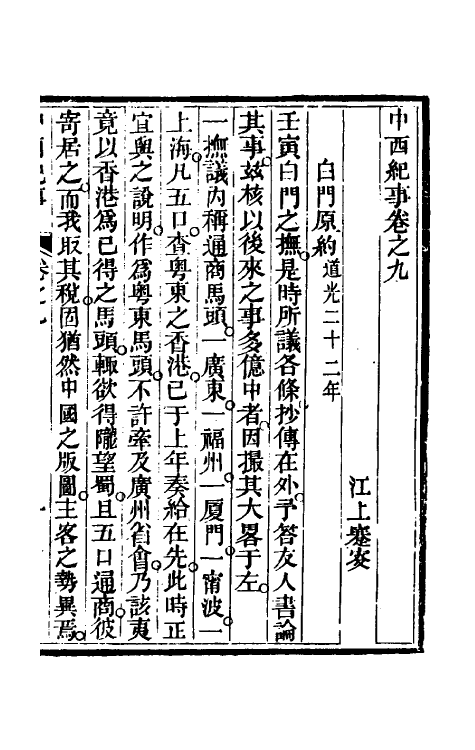 中西紀事卷之九
江上蹇叟
白門原約道光二十二年
壬寅白門之撫是時所議各條抄傳在外予答友人書論
其事兹核以後來之事多億中者因撮其大畧于左
一撫議內稱通商馬頭一廣東一福州一厦門一甯波一
上海凡五口查粤東之香港已于上年奏給在先此時正
宜與之說明作爲粤東馬頭不許牽及廣州省會乃該夷
竟以香港爲已得之馬頭輙欲得隴望蜀且五口通商彼
寄居之而我取其稅固猶然中國之版圖主客之勢異焉
中西紀事
卷之九
一